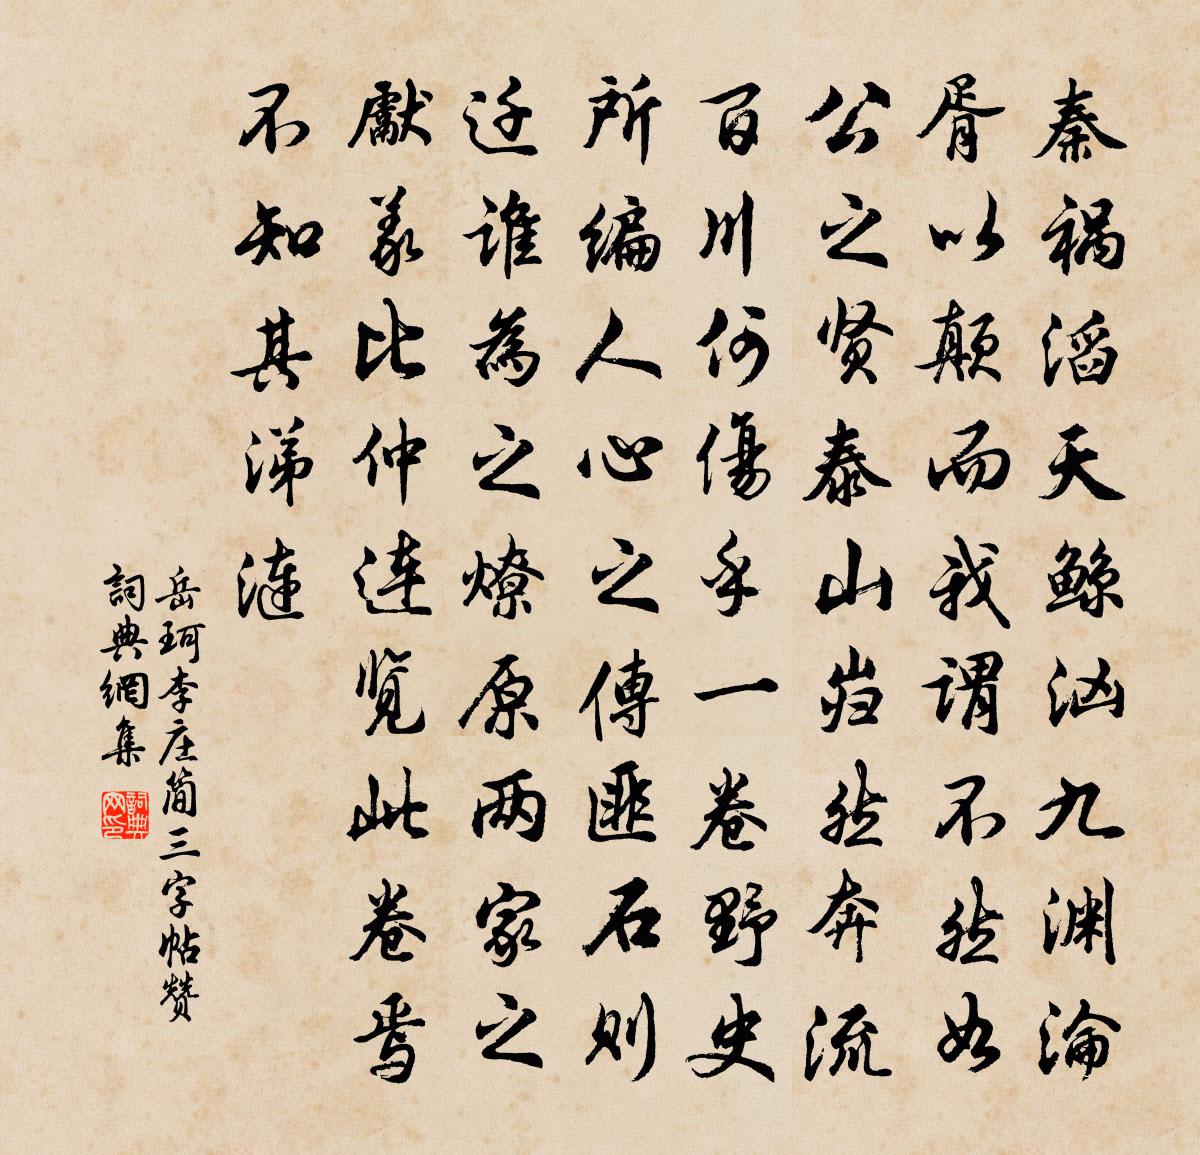 秦祸滔天鲸汹九渊淪
胥以颠而我谓不然如
公之贤泰山岿然奔流
百川何傷乎一卷野史
所编人心之傳匪石则
迁谁為之燎原两家之
獻義比仲連览此卷焉
不知其涕漣
岳珂李庄简三字帖赞
詞典網集
詞典网印